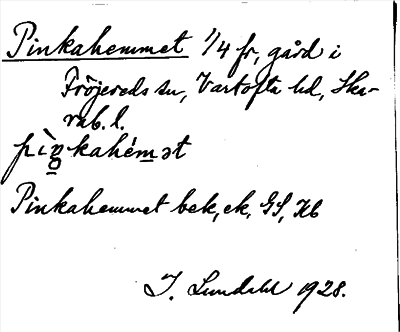 Pinkahemmet 1/4 fr, gård i
Fröjereds sn, Vartofta hd, Ska-
rab. l.
pìŋkahém̲ət
Pinkahemmet bek, ek, GS, Kb
J. Lundahl 1928.